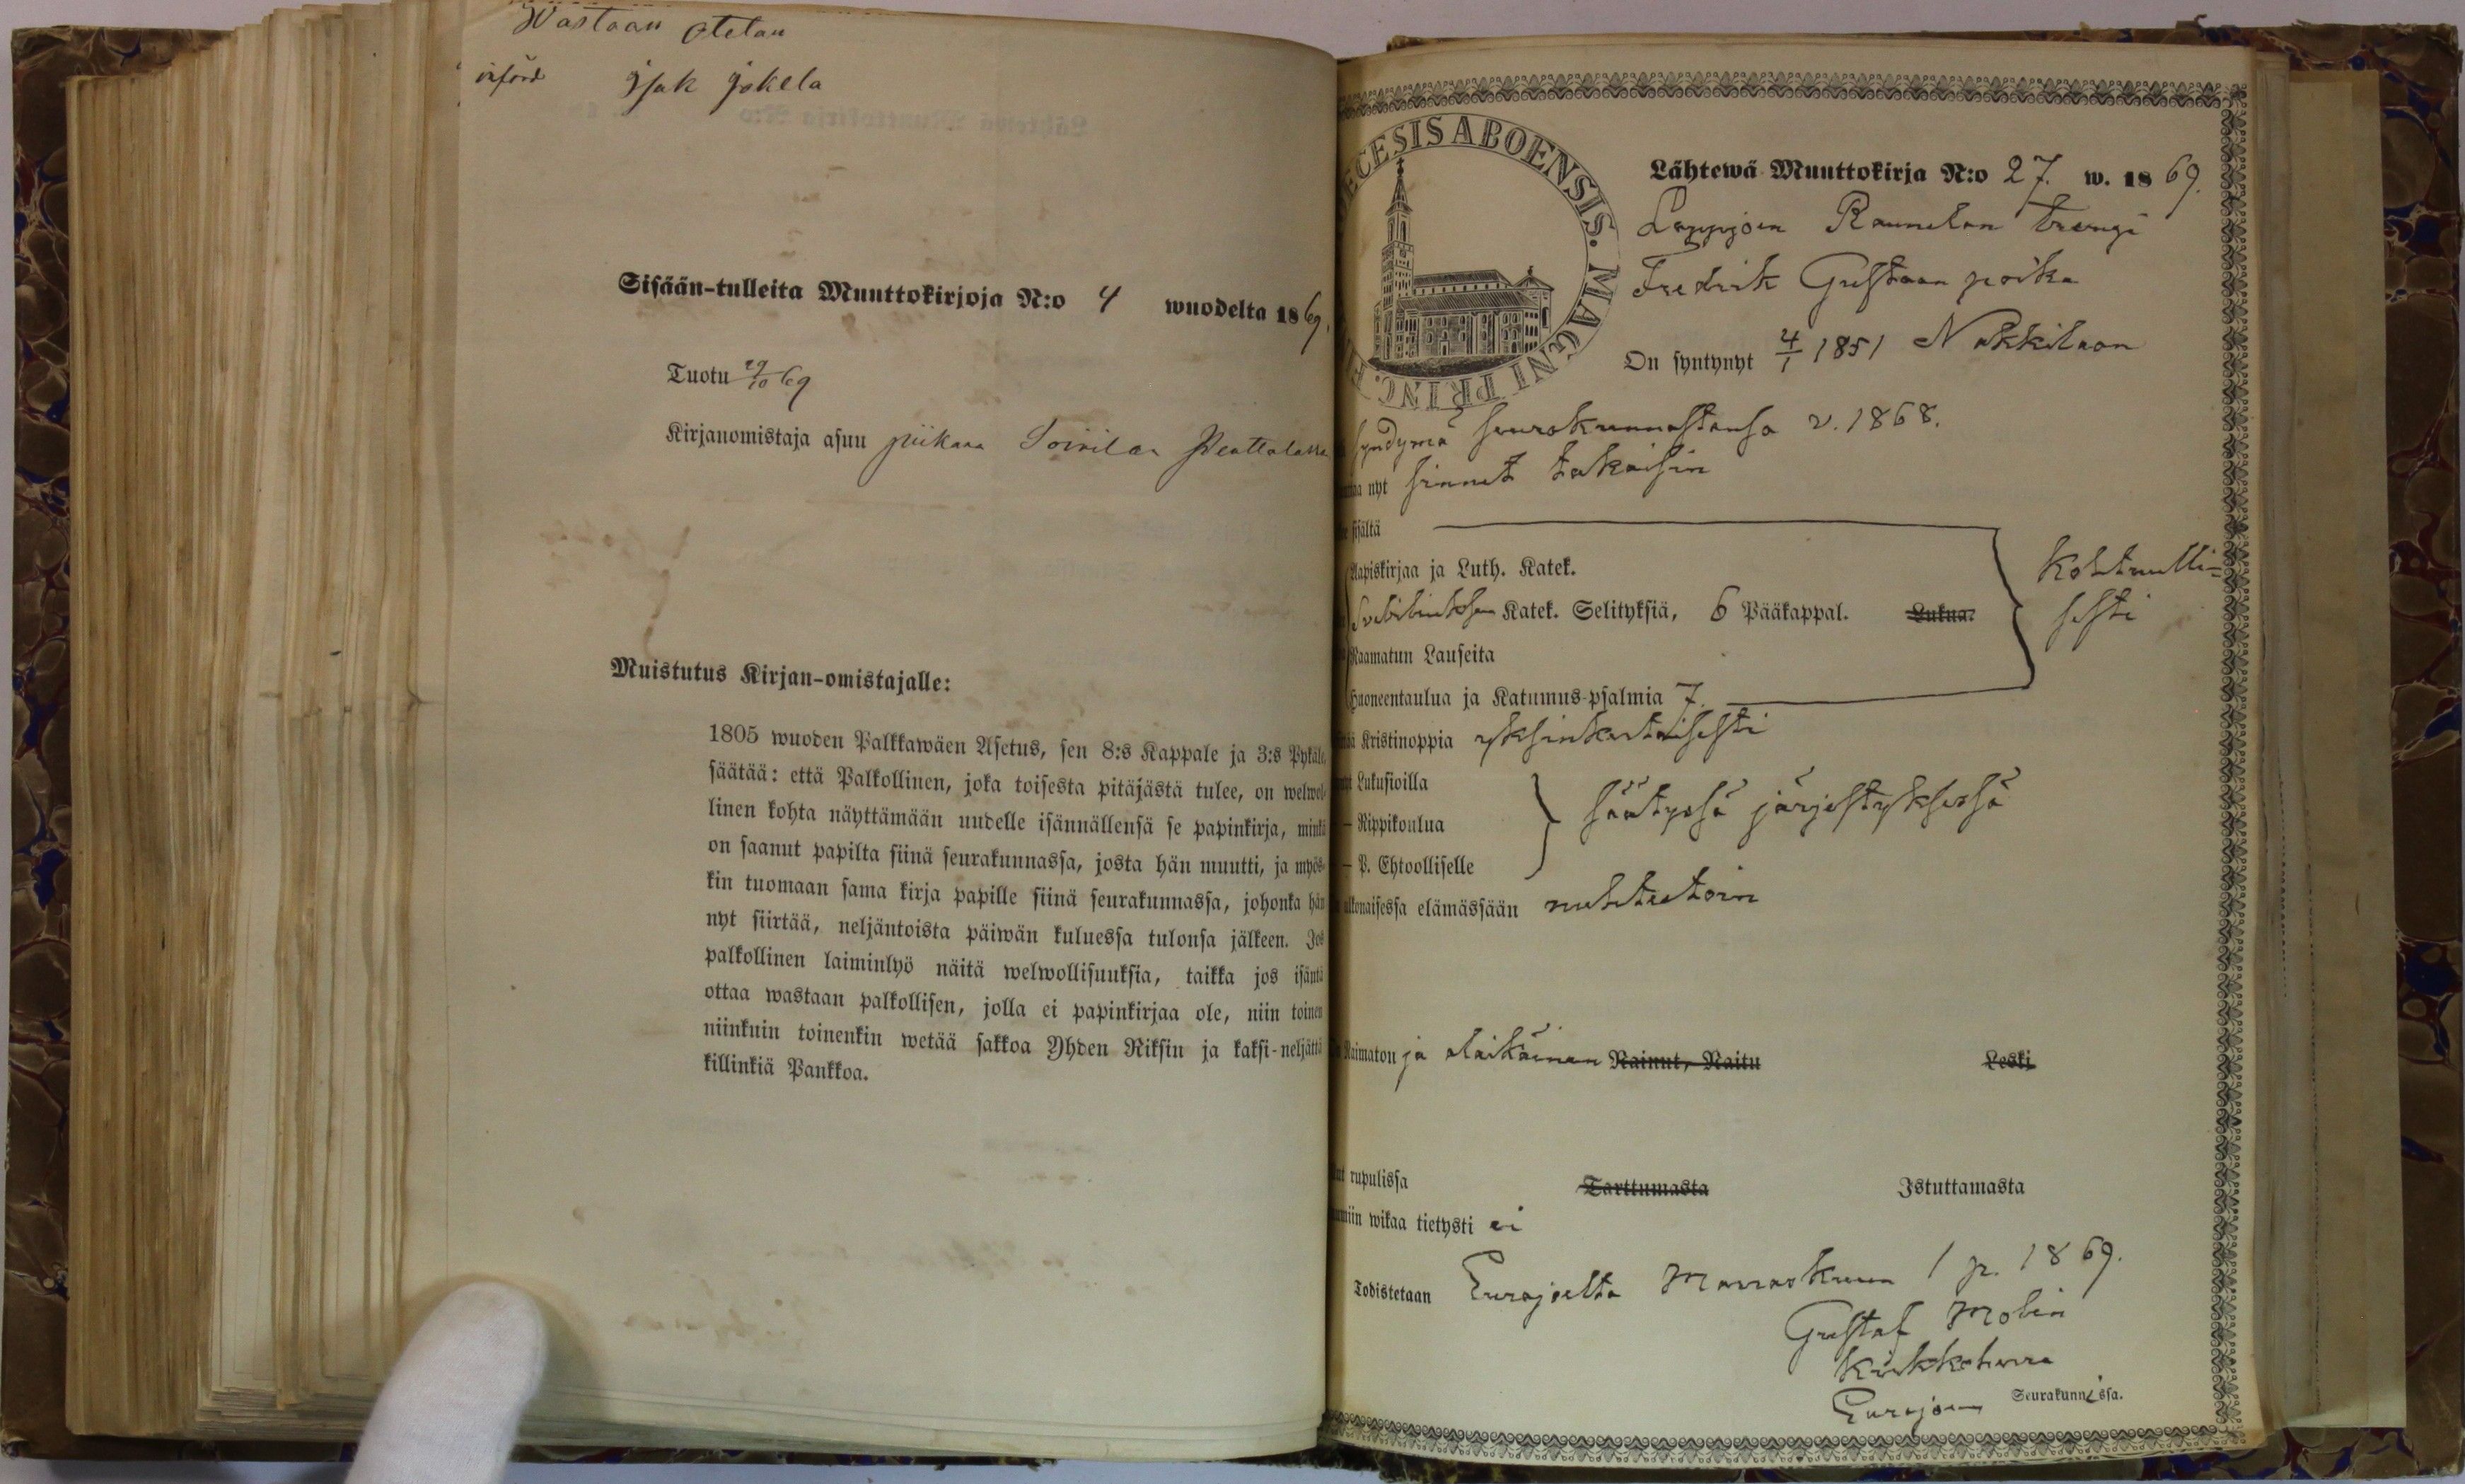 Wastaan otetan
införd Isak Jokela
Sisään-tulleita Muuttokirjoja N:o 4 wuodelta 1869.
Tuotu 29/10 69
Kirjanomistaja asuu piikana Soinilan
Muistutus Kirjan-omistajalle:
1805 wuoden Palkkawäen Asetus, sen 8:s Kappale ja 3:s Pykälä
säätää: että Palkollinen, joka toisesta pitäjästä tulee, on welwol-
linen kohta näyttämään uudelle isännällensä se papinkirja, minkä
on saanut papilta siinä seurakunnassa, josta hän muutti, ja myös-
kin tuomaan sama kirja papille siinä seurakunnassa, johonka hän
nyt siirtää, neljäntoista päiwän kuluessa tulonsa jälkeen. Jos
palkollinen laiminlyö näitä welwollisuuksia, taikka jos isäntä
ottaa wastaan palkollisen, jolla ei papinkirjaa ole, niin toinen
niinkuin toinenkin wetää sakkoa Yhden Riksin ja kaksi-neljättä
killinkiä Pankkoa.
ECESIS ABOENSIS. MAGNI PRINC. F
Lähtewä Muuttokirja N:o 27. w. 1869.
Lappijoen Raunelan trengi
Fredrik Gustaan poika
On syntynyt 4/1 1851 Nakkilaan
syndymä seurakunnastansa v. 1868.
nyt sinnet takaisin
sisältä
Aapiskirjaa ja Luth. Katek.
Svebiliuksen Katek. Selityksiä, 6 Pääkappal. Lukua.
kohtuulli-
sesti
Raamatun Lauseita
Huoneentaulua ja Katumus-psalmia 7.
Kristinoppia yksinkertaisesti
Lukusioilla
– Rippikoulua
säätyssä järjestyksessä
– P. Ehtoolliselle
ulkonaisessa elämässään nuhteetoin
Naimaton ja alaikäinen Nainut, Naitu Leski
rupulissa Tarttumasta Istuttamasta
wikaa tietysti ei
Todistetaan Eurajoelta Marraskuun 1 p. 1869.
Gustaf Molin
Kirkkoherra
Eurajoen Seurakunnissa.